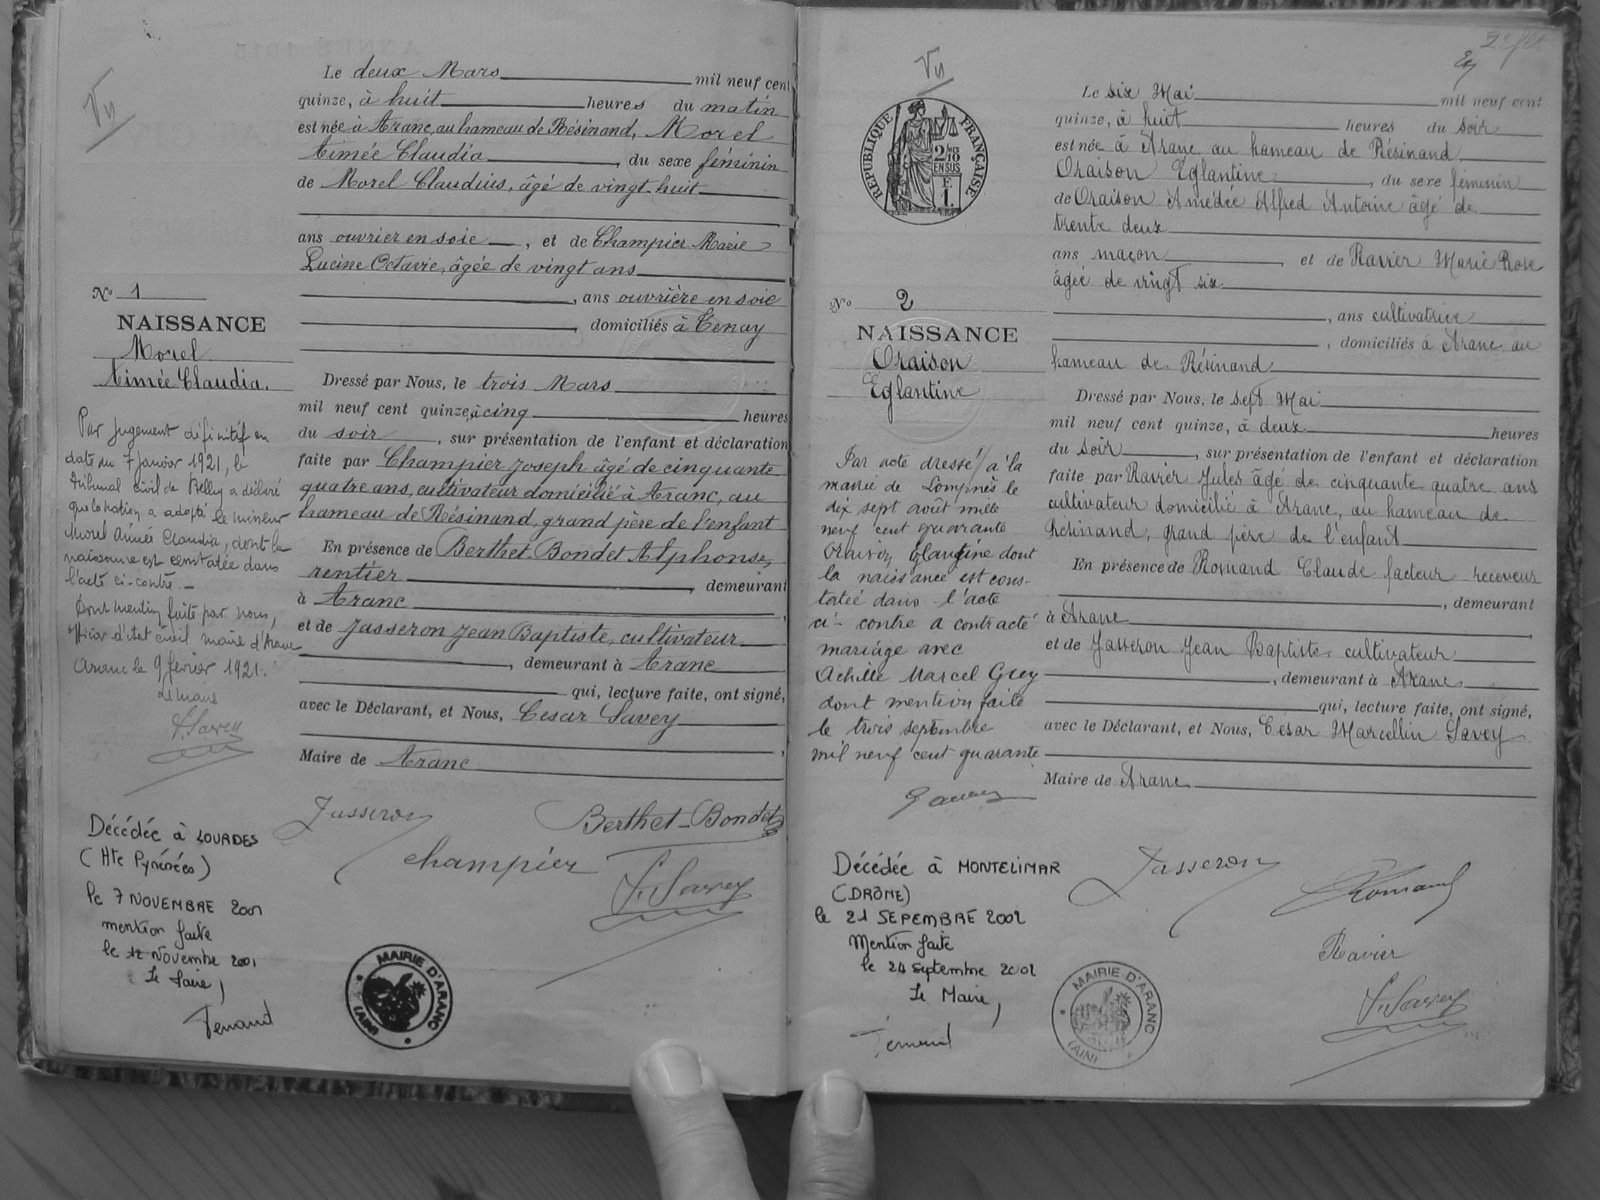 Vu
Le deux Mars mil neuf cent
quinze, à huit heures du matin
est née à Aranc, au hameau de Résinand, Morel
Aimée Claudia, du sexe féminin
de Morel Claudius, âgé de vingt-huit
ans ouvrier en soie, et de Champier Marie
Lucine Octavie, âgée de vingt ans
, ans ouvrière en soie
, domiciliés à Tenay
Dressé par Nous, le trois Mars
mil neuf cent quinze, à cinq heures
du soir, sur présentation de l'enfant et déclaration
faite par Champier Joseph âgé de cinquante
quatre ans, cultivateur domicilié à Aranc, au
hameau de Résinand, grand père de l'enfant
En présence de Berthet-Bondet Alphonse,
rentier, demeurant
à Aranc,
et de Jasseron Jean Baptiste, cultivateur
, demeurant à Aranc
qui, lecture faite, ont signé,
avec le Déclarant, et Nous, César Savey
,
Maire de Aranc
Nº 1
NAISSANCE
Morel
Aimée Claudia.
Par jugement définitif en
date du 7 janvier 1921, le
Tribunal civil de Belley a déclaré
que la nation a adopté le mineur
Morel Aimée Claudia, dont la
naissance est constatée dans
l'acte ci-contre. -
Dont mention faite par nous,
officier d'état civil, maire d'Aranc
Aranc le 9 février 1921.
Le maire
Savey
Décédée à LOURDES
(Hte Pyrénées)
le 7 NOVEMBRE 2001
mention faite
le 12 Novembre 2001
Le Maire,
Jasseron
Berthet-Bondet
champier
Savey
MAIRIE D'ARANC
(AIN)
Vu
RÉPUBLIQUE FRANÇAISE
2/10
EN SUS
F.
1.
Le six Mai mil neuf cent
quinze, à huit heures du soir
est née à Aranc au hameau de Résinand
Oraison Eglantine, du sexe féminin
de Oraison Amédée Alfred Antoine âgé de
trente deux
ans maçon, et de Ravier Marie Rose
âgée de vingt six
, ans cultivatrice
, domiciliés à Aranc au
hameau de Résinand
Dressé par Nous, le sept Mai
mil neuf cent quinze, à deux heures
du soir, sur présentation de l'enfant et déclaration
faite par Ravier Jules âgé de cinquante quatre ans
cultivateur domicilié à Aranc, au hameau de
Résinand, grand père de l'enfant
En présence de Romand Claude facteur receveur
, demeurant
à Aranc,
et de Jasseron Jean Baptiste cultivateur
, demeurant à Aranc
qui, lecture faite, ont signé,
avec le Déclarant, et Nous, César Marcellin Savey
Maire de Aranc
Nº 2
NAISSANCE
Oraison
Eglantine
Par acte dressé à la
mairie de Lompnès le
dix sept août mille
neuf cent quarante
Oraison Eglantine dont
la naissance est cons-
tatée dans l'acte
ci-contre a contracté
mariage avec
Achille Marcel Grey
dont mention faite
le trois septembre
mil neuf cent quarante
Décédée à MONTELIMAR
(DRÔME)
le 21 SEPEMBRE 2002
Mention faite
le 24 Septembre 2002
Le Maire,
Jasseron
Romand
Ravier
Savey
MAIRIE D'ARANC
(AIN)